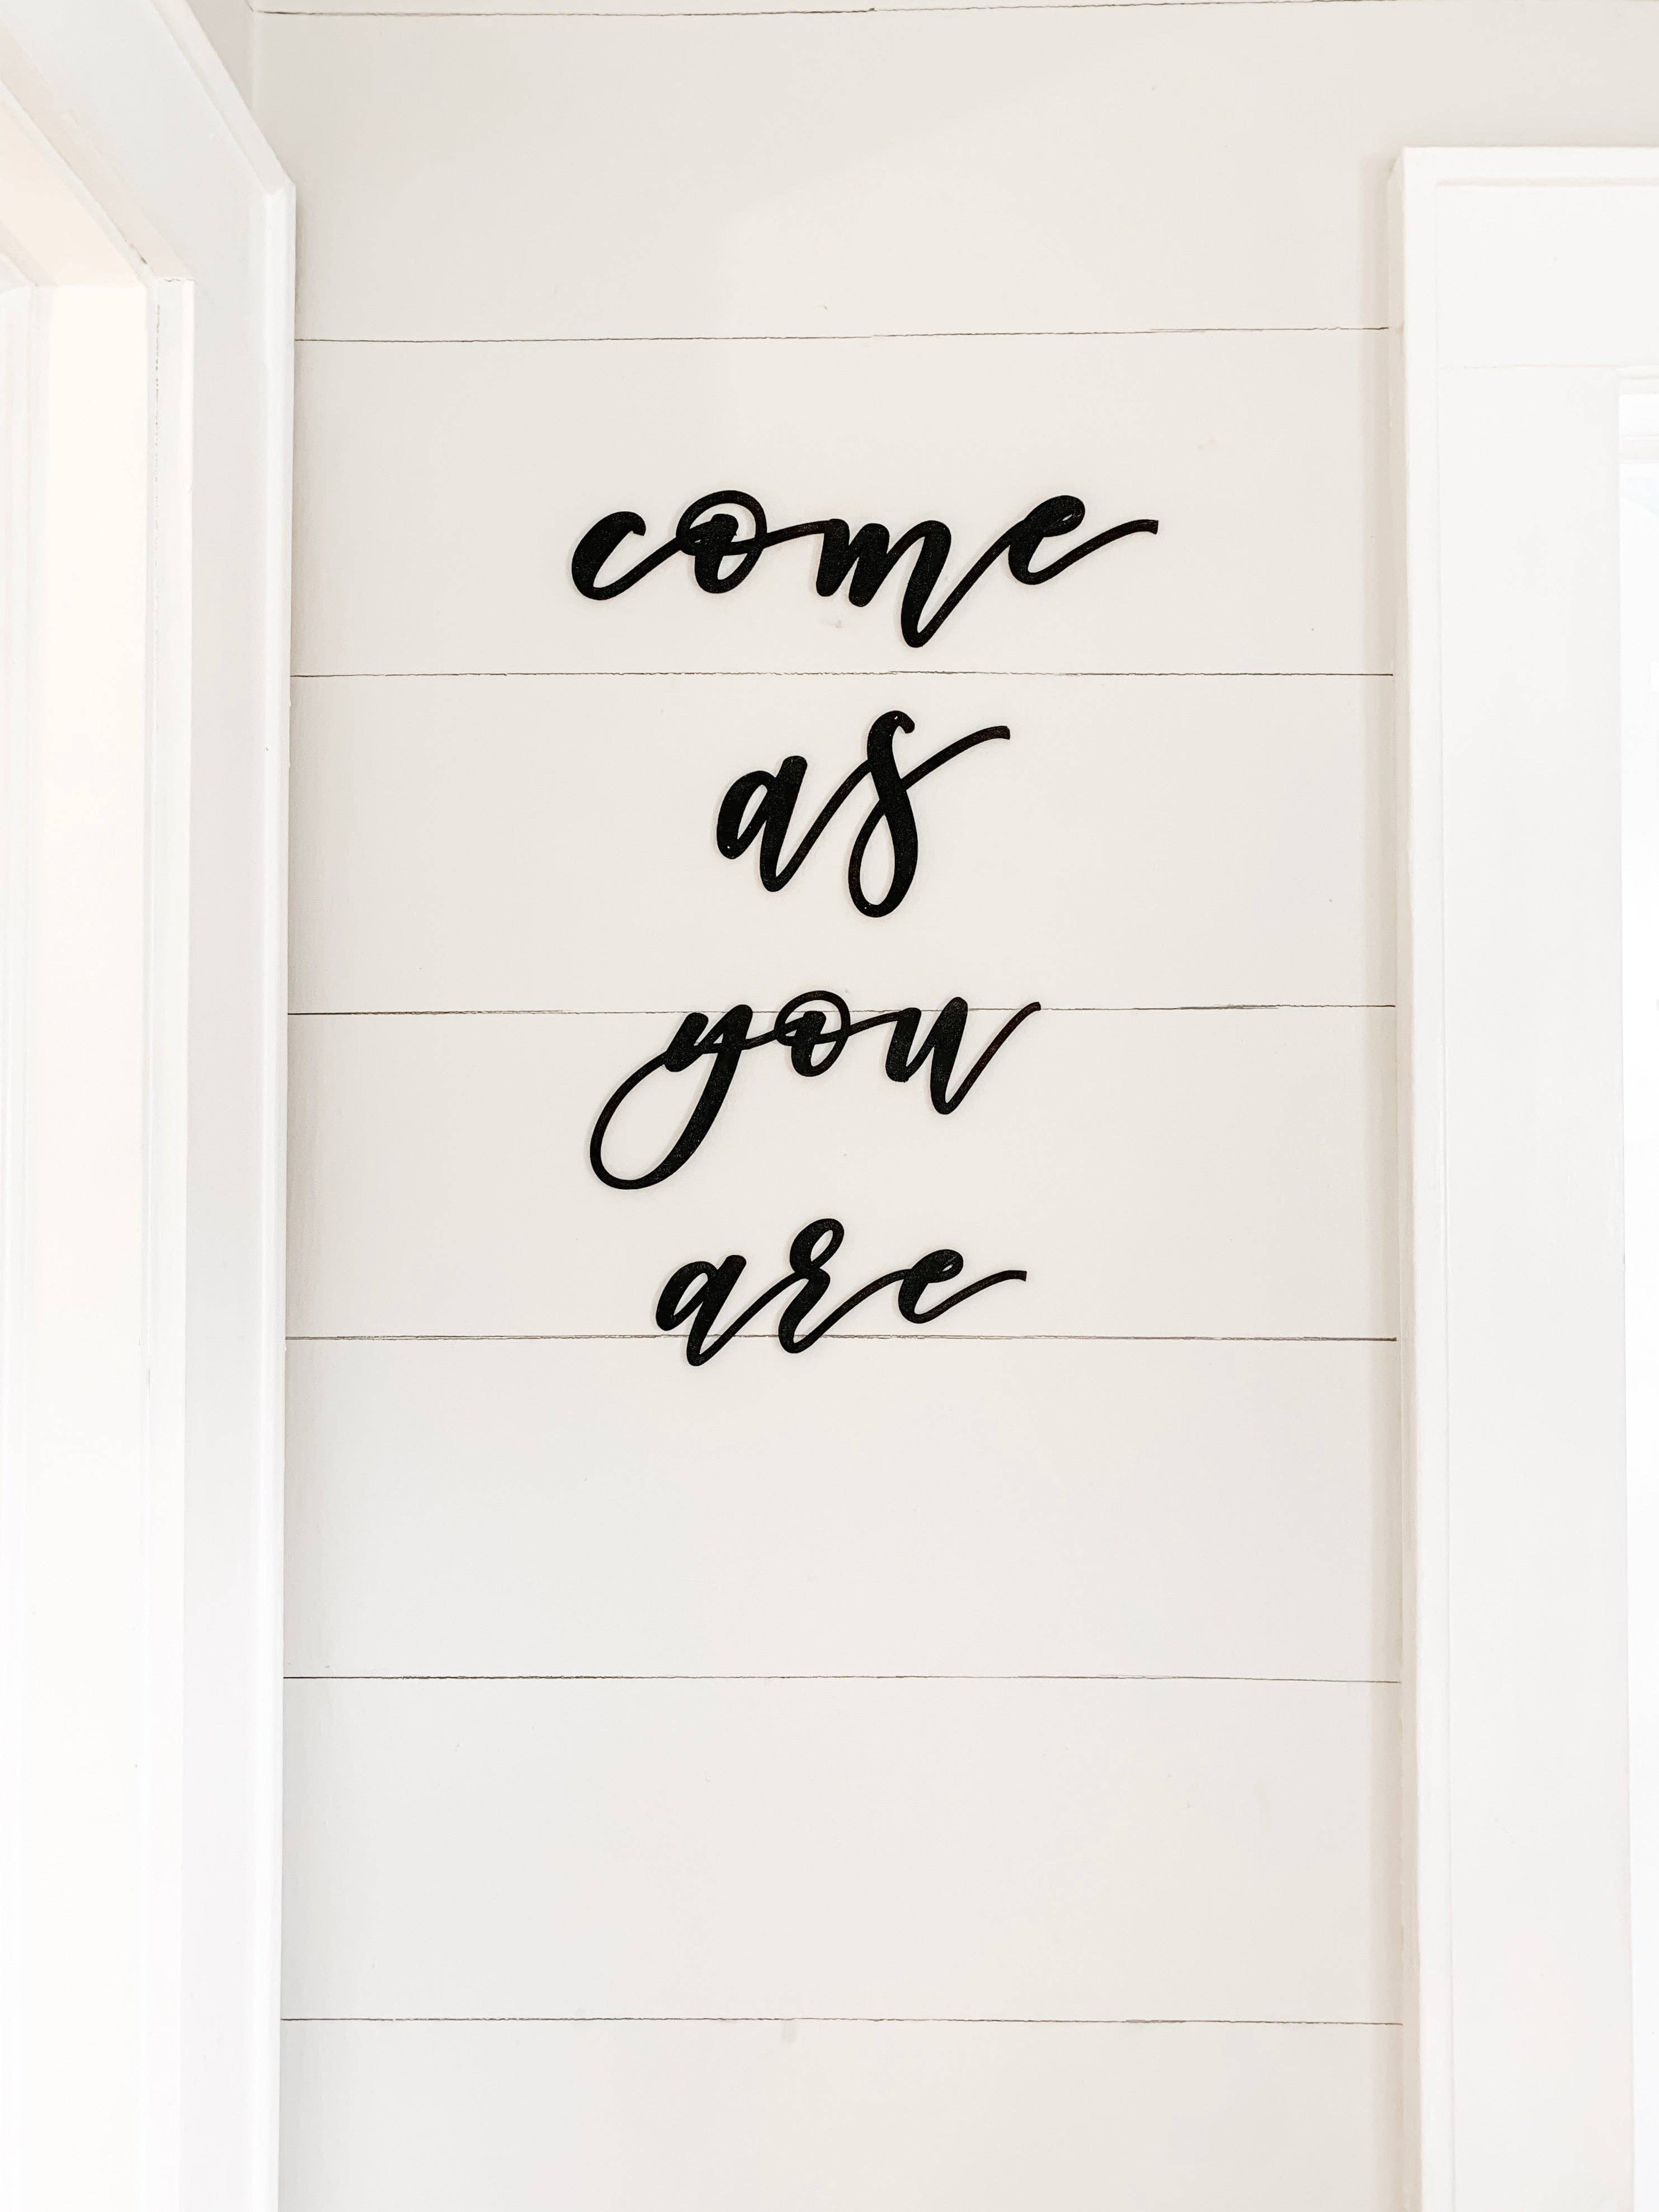 come
as
you
are